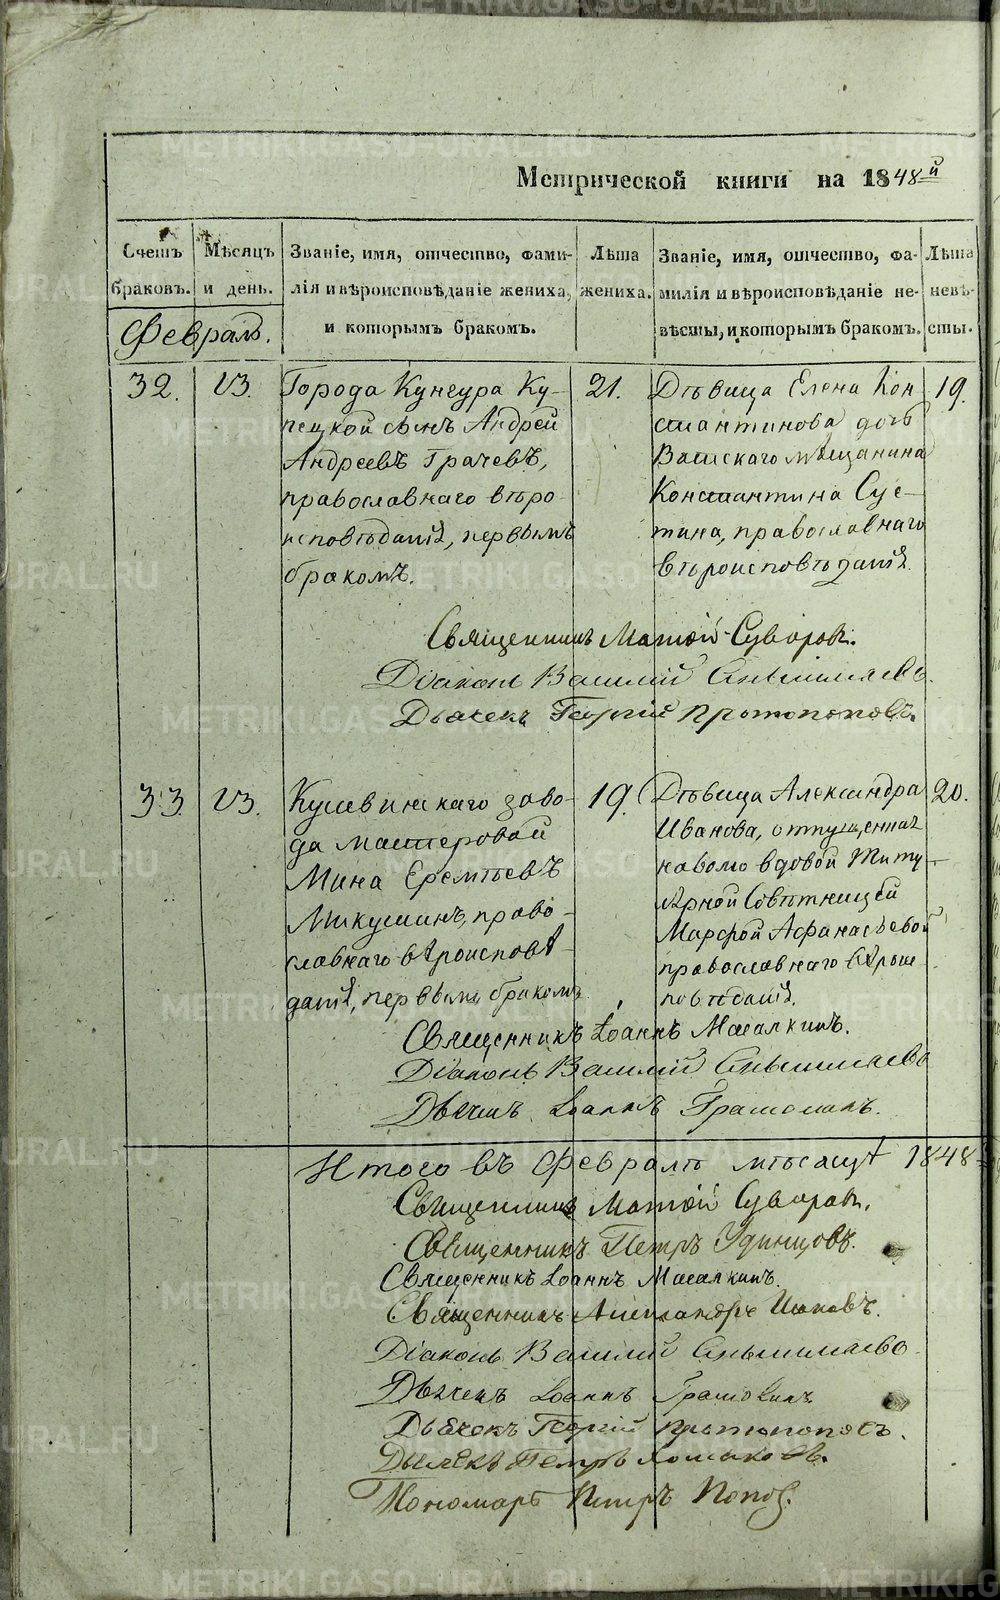 Метрической книги на 1848й
Счетъ браковъ.
Мѣсяцъ и день.
Званіе, имя, отчество, фами-
лія и вѣроисповѣданіе жениха,
и которымъ бракомъ.
Лѣта
жениха.
Званіе, имя, отчество, фа-
милія и вѣроисповѣданіе не-
вѣсты, и которымъ бракомъ.
Лѣта
невѣ-
сты.
Февраль.
32.
Города Кунгура Ку-
пецкой сынъ Андрей
Андреевъ Грачевъ,
православнаго вѣро-
исповѣданія, первымъ
бракомъ.
21.
Дѣвица Елена Кон-
стантинова дочь
Вятскаго мѣщанина
Константина Сус-
тина, православнаго
вѣроисповѣданія.
19.
Священникъ Матѳій Суворовъ.
Діаконъ Василій
Дьячекъ Георгій Протопоповъ.
33.
Кушвинскаго заво-
да мастеровой
Мина Еремѣевъ
Микушинъ, право-
славнаго вѣроисповѣ-
данія, первымъ бракомъ
19.
Дѣвица Александра
Иванова, отпущенная
наволю вдовой Титу-
лярной Совѣтницей
Марфой Афанасьевой
православнаго вѣроис-
повѣданія.
20.
Священникъ Іоаннъ Масалкинъ.
Діаконъ Василій
Дьячекъ Іоаннъ
Итого въ Февралѣ мѣсяцѣ 1848
Священникъ Матѳій Суворовъ.
Священникъ Петръ Удинцовъ.
Священникъ Іоаннъ Масалкинъ.
Священникъ Александръ
Діаконъ Василій
Дьячекъ Іоаннъ
Дьячекъ Георгій Протопоповъ.
Дьячекъ Петръ
Пономарь Петръ Поповъ.
METRIKI.GASO-URAL.RU